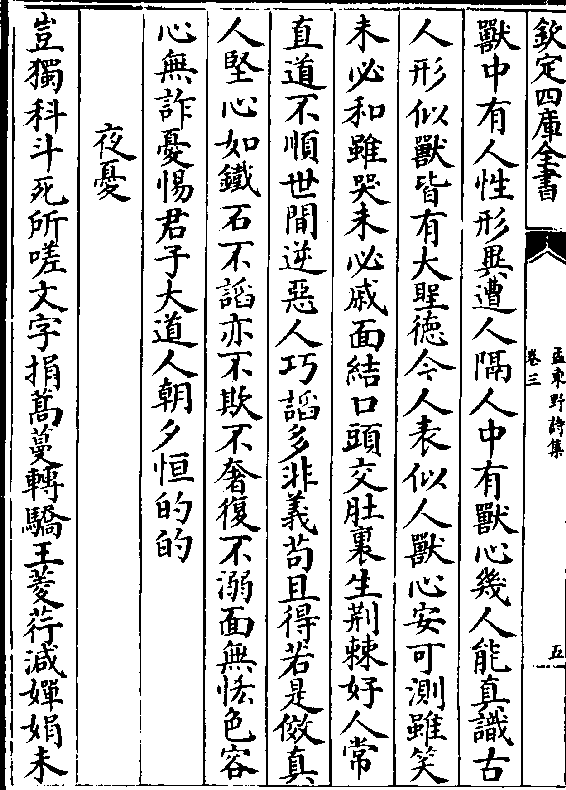 欽定四庫全書
孟東野詩集
卷三
五
獸中有人性形異遭人隔人中有獸心幾人能真識古
人形似獸皆有大聖徳今人表似人獸心安可測雖笑
未必和雖哭未必戚面結口頭交肚裏生荆棘好人常
直道不順世間逆惡人巧謟多非義苟且得若是傚真
人堅心如鐵石不謟亦不欺不奢復不溺面無恡色容
心無詐憂惕君子大道人朝夕恒的的
夜憂
豈獨科斗死所嗟文字捐蒿蔓轉驕王菱荇減嬋娟未